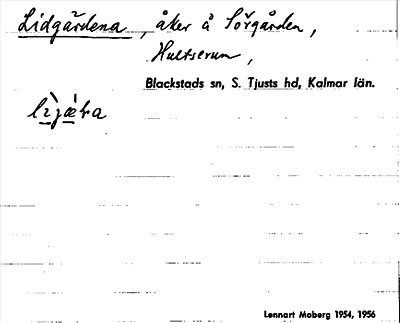 Lidgärdena, åker å Sörgården,
Hultserum,
Blackstads sn, S. Tjusts hd, Kalmar län.
Lennart Moberg 1954, 1956